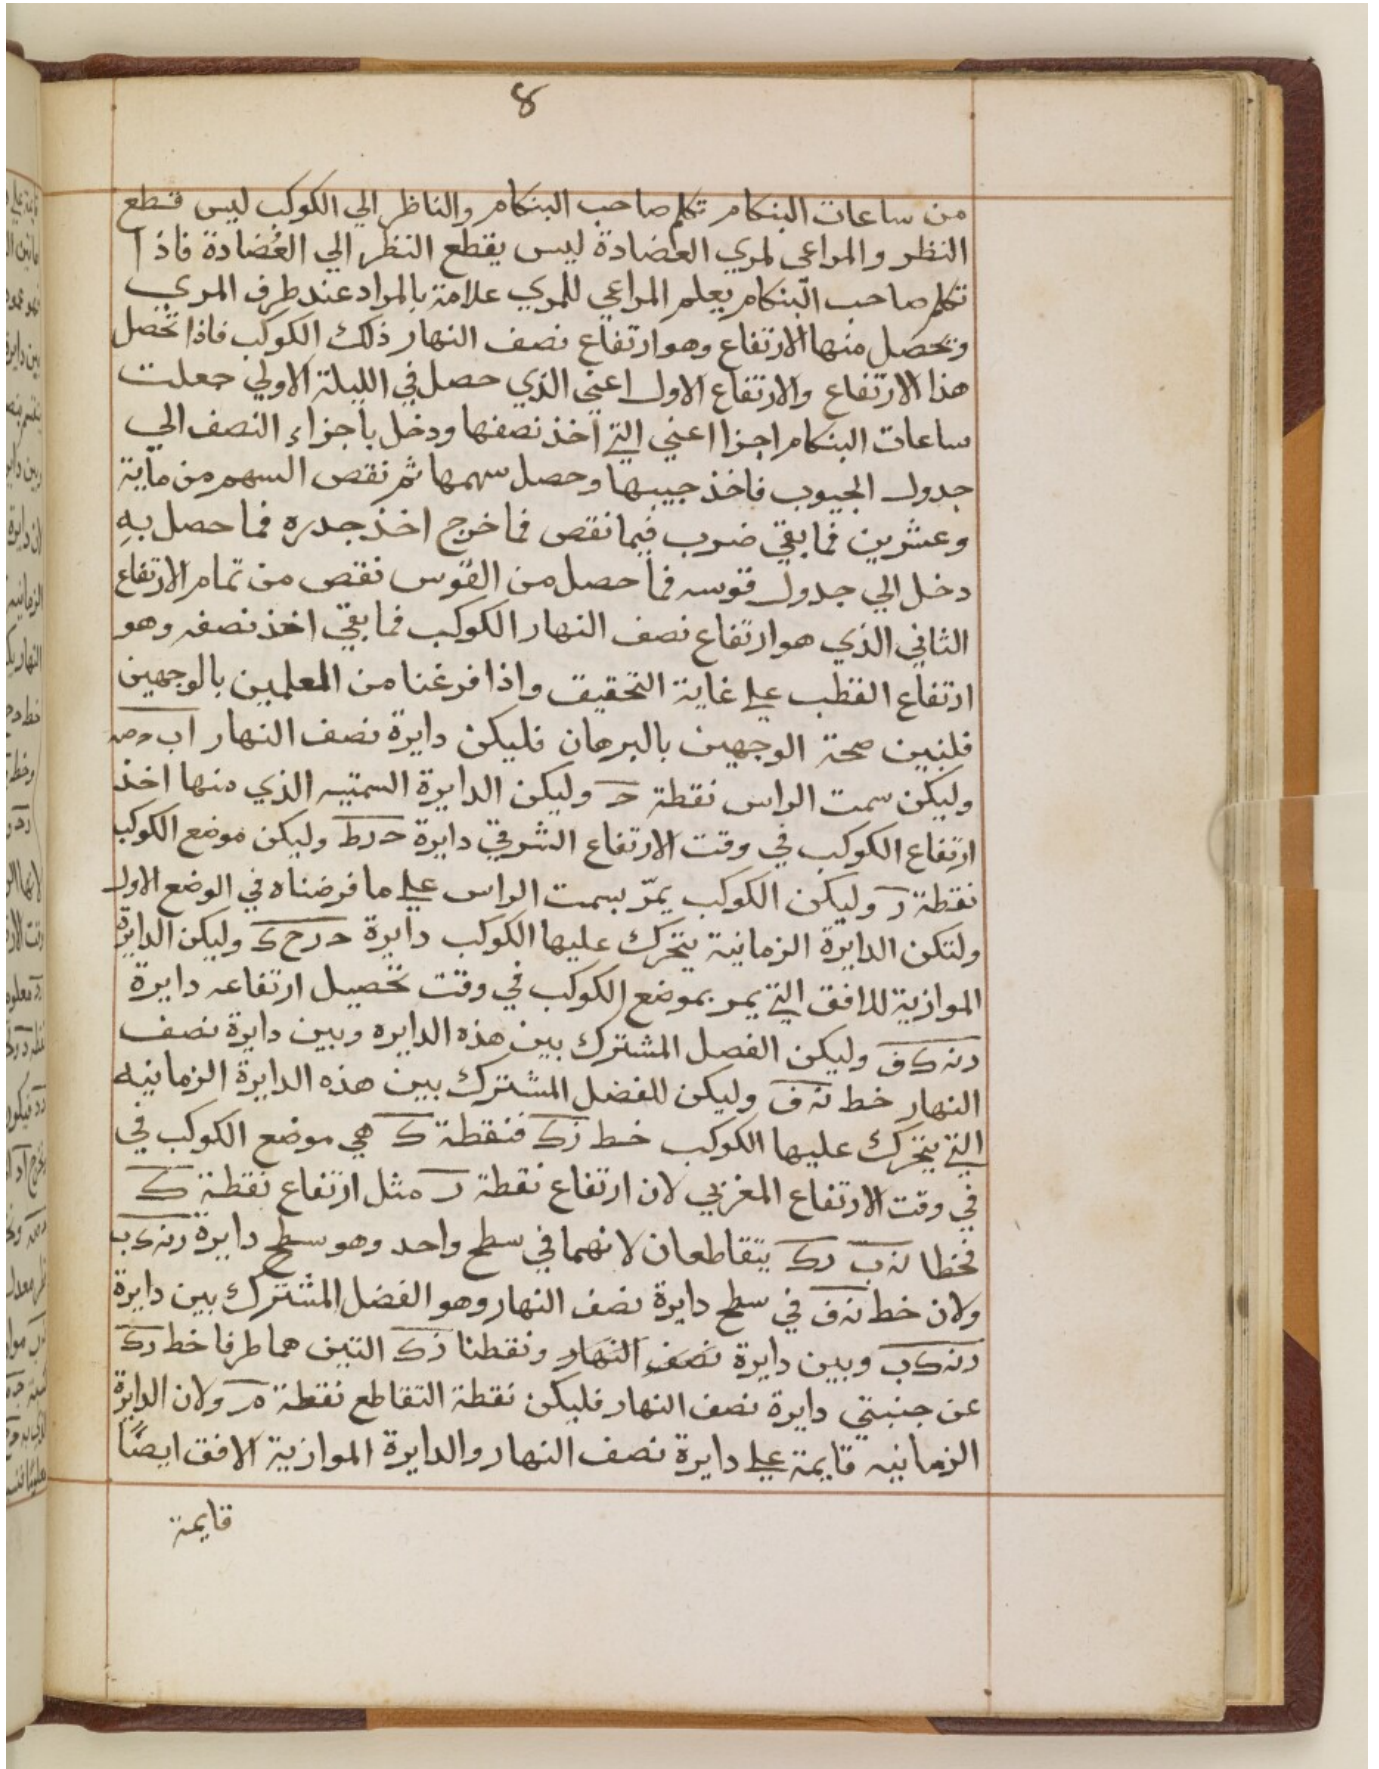 8
من ساعات البنكام تكلم صاحب البنكام والناظر الي الكوكب ليس قطع
النظر والمراعي لمري العضادة ليس يقطع النظر الي العُضادة فاذا
تكلم صاحب البنكام يعلم المراعي للمري علامة بالمراد عند طرف المري
وتحصل منها الارتفاع وهو ارتفاع نصف النهار ذلك الكوكب فاذا تحصل
هذا الارتفاع والارتفاع الاول اعني الذي حصل في الليلة الاولي جعلت
ساعات البنكام اجزا اعني التي اخذ نصفها ودخل بأجزاء النصف الي
جدول الجيوب فاخذ جيبها وحصل سهمها ثم نقص السهم من مأية
وعشرين فما بقي ضرب فيما نقص فما خرج اخذ جدره فما حصل به
دخل الي جدول قوسه فما حصل من القوس نقص من تمام الارتفاع
الثاني الذي هو ارتفاع نصف النهار الكوكب فما بقي اخذ نصفه وهو
ارتفاع القطب علي غاية التحقيق واذا فرغنا من المعلمين بالوجهين
فلنبين صحة الوجهين بالبرهان فليكن دايرة نصف النهار اب
وليكن سمت الراس نقطة ح وليكن الدايرة السمتيه الذي منها اخذ
ارتفاع الكوكب في وقت الارتفاع الشرقي دايرة حرط وليكن موضع الكوكب
نقطة ر وليكن الكوكب يمرّ بسمت الراس علي ما فرضناه في الوضع الاول
ولتكن الدايرة الزمانية يتحرك عليها الكوكب دايرة حرح ك وليكن الدايرة
الموازية للافق التي يمر بموضع الكوكب في وقت تحصيل ارتفاعه دايرة
رنه ك ف وليكن الفصل المشترك بين هذه الدايره وبين دايرة نصف
النهار خط نه ف وليكن للفضل المشترك بين هذه الدايرة الزمانيه
التي يتحرك عليها الكوكب خط زك فنقطة ك هي موضع الكوكب في
في وقت الارتفاع المغربي لان ارتفاع نقطة ر مثل ارتفاع نقطة ك
فخطا نه ب رك يتقاطعان لانهما في سطح واحد وهو سطح دايرة رنه ك ب
ولان خط نه ف في سطح دايرة نصف النهار وهو الفضل المشترك بين دايرة
رنه ك ب وبين دايرة نصف النهار ونقطتا زك التين هما طرفا خط رك
عن جنبتي دايرة نصف النهار فليكن نقطة التقاطع نقطة م ولان الدايرة
الزمانيه قايمة علي دايرة نصف النهار والدايرة الموازية الافق ايضًا
قايمة